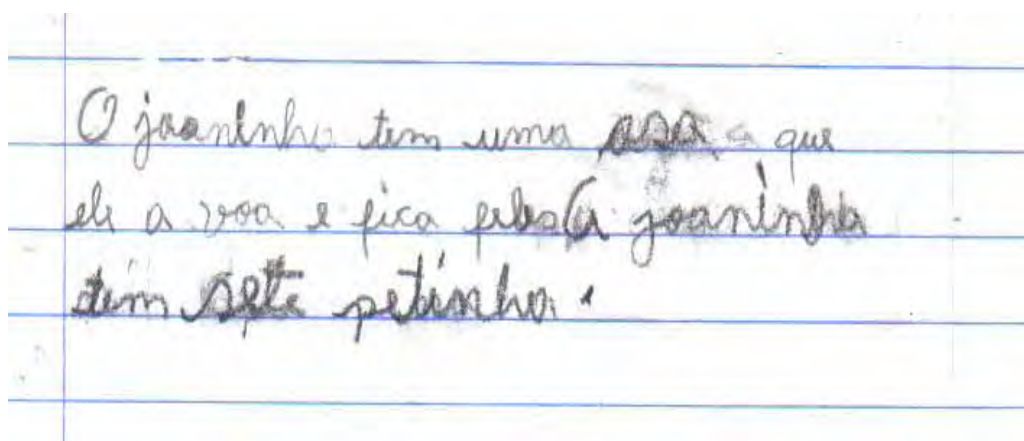 O joaninho tem uma asa que
ele a voa e fica A joaninha
tem sete petinha.